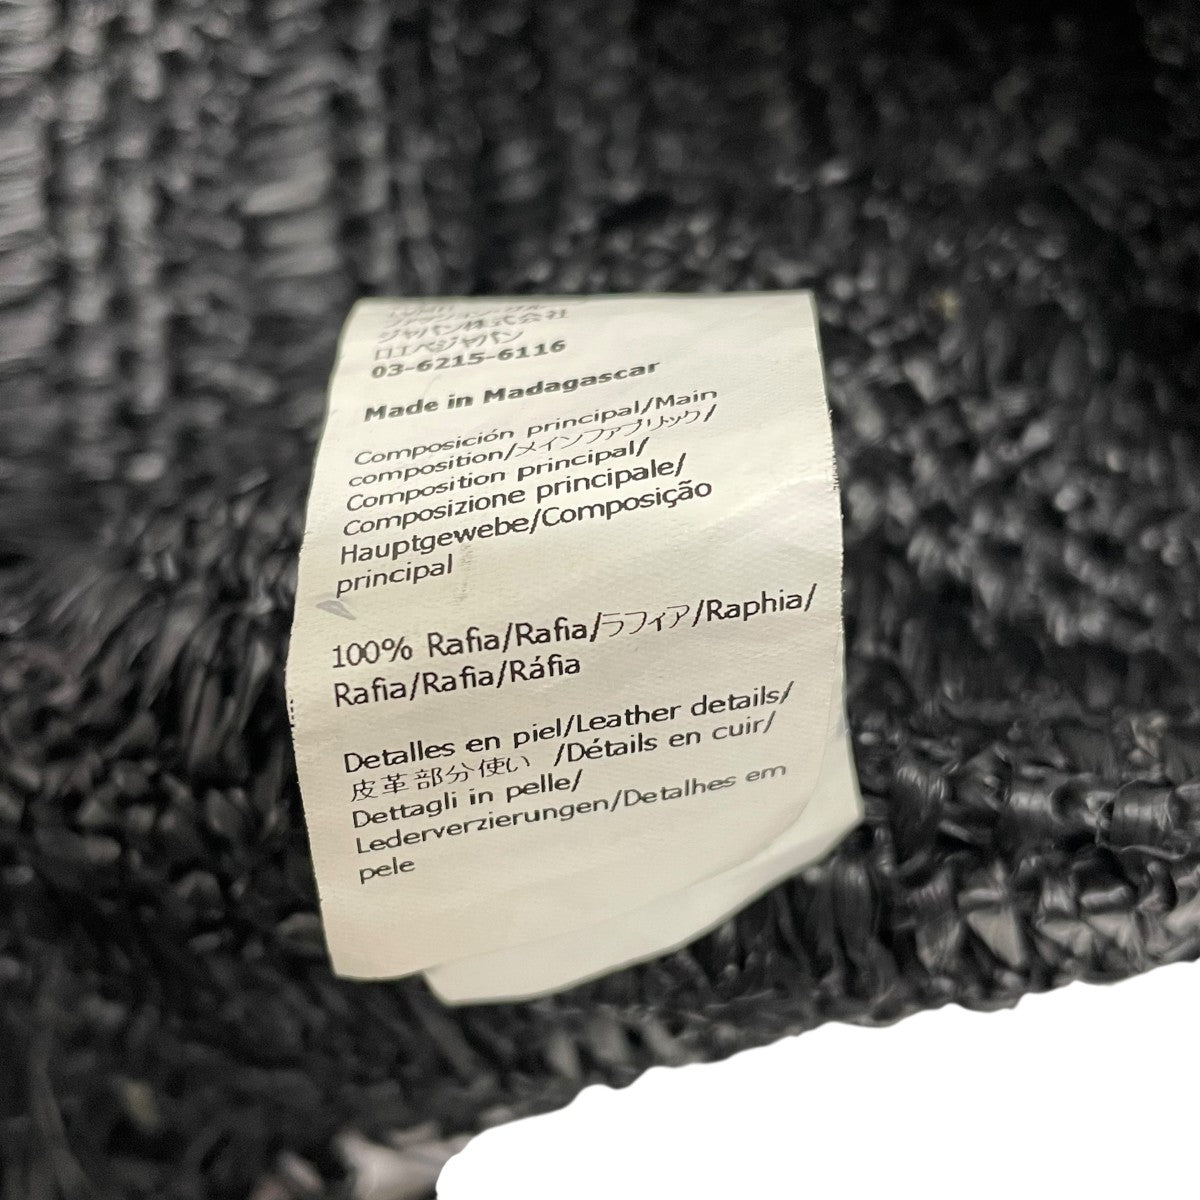 ジャパン株式会社
ロエベジャパン
03-6215-6116
Made in Madagascar
Composición principal/Main
composition/メインファブリック/
Composition principal/
Composizione principale/
Hauptgewebe/Composição
principal
100% Rafia/Rafia/ラフィア/Raphia/
Rafia/Rafia/Ráfia
Detalles en piel/Leather details/
皮革部分使い /Détails en cuir/
Dettagli in pelle/
Lederverzierungen/Detalhes em
pele